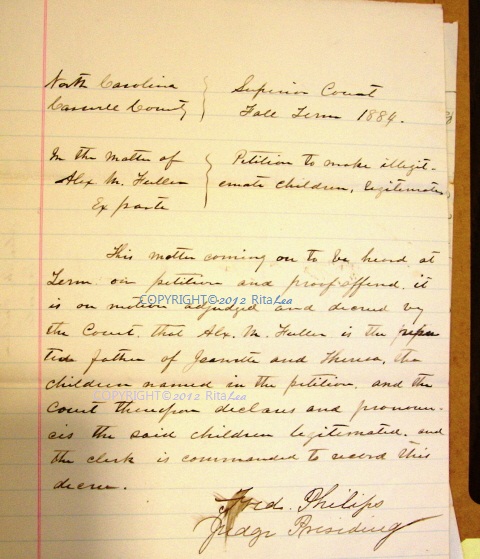 North Carolina } Superior Court
Caswell County } Fall Term 1884.
In the matter of } Petition to make illegit-
Alex M. Fuller } emate children, legitimate
Ex parte
This matter coming on to be heard at
Term on petition and proof offered, it
is on motion adjudged and decreed by
COPYRIGHT©2012 RitaLea
the Court, that Alex. M. Fuller is the repu
ted father of Jeanette and Theresa, the
children named in the petition, and the
COPYRIGHT©2012 RitaLea
Court thereupon declares and pronoun-
ces the said children legitimated, and
the clerk is commanded to record this
decree.
Fred. Philips
Judge Presiding